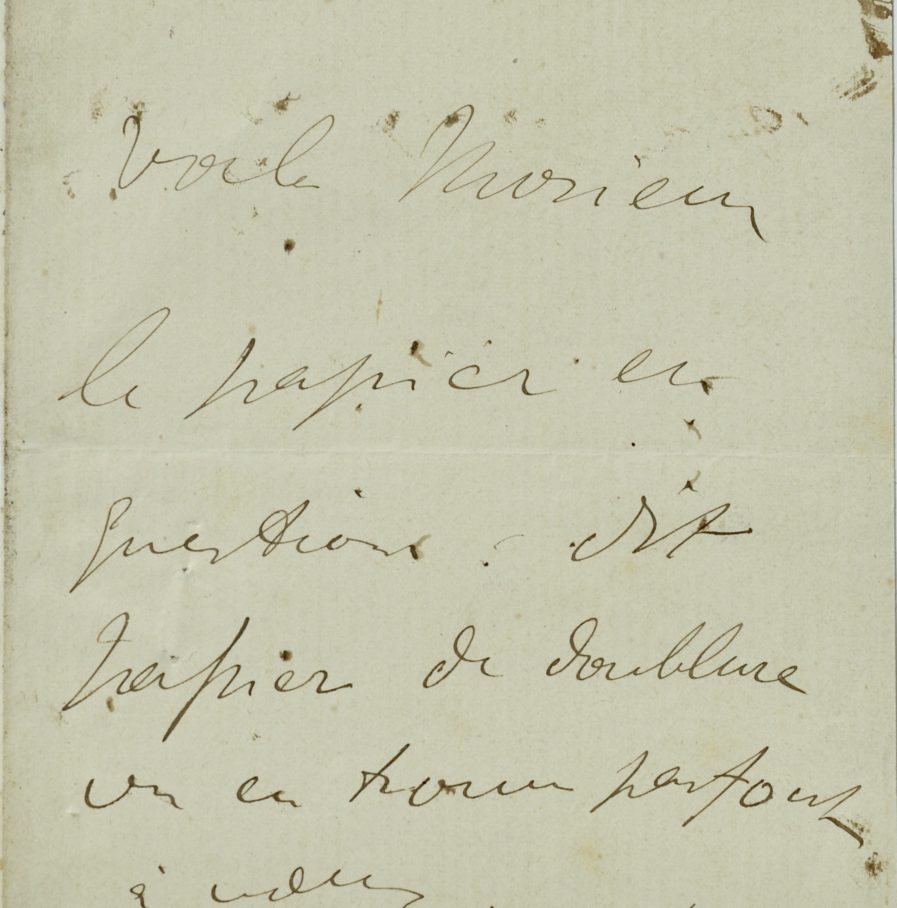 Voila Monsieur
le papier en
question. dit
papier de doublure
on en trouve partout
à